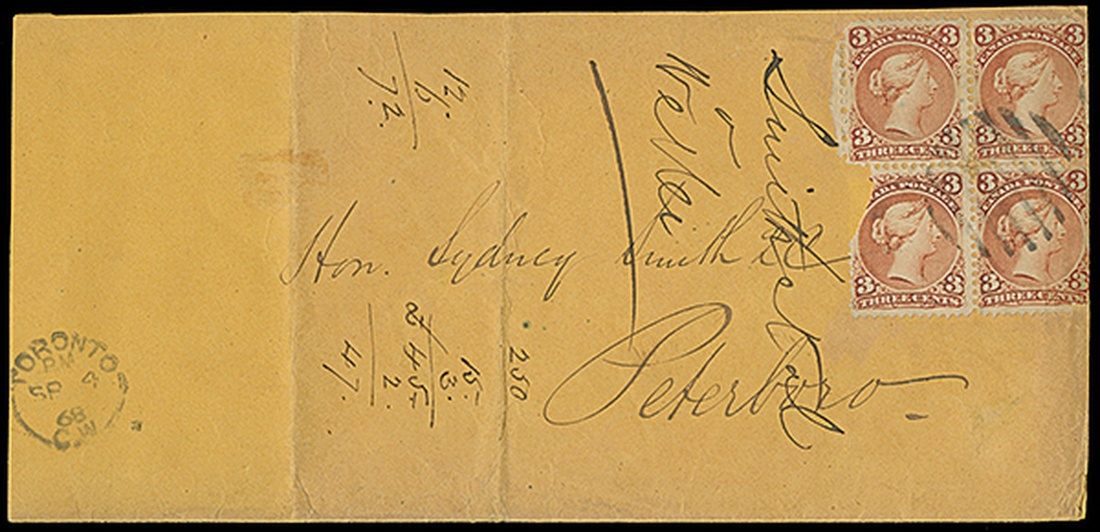 3 3
CANADA POSTAGE
3 3
THREE CENTS
3 3
CANADA POSTAGE
3 3
THREE CENTS
3 3
CANADA POSTAGE
3 3
THREE CENTS
3 3
CANADA POSTAGE
3 3
THREE CENTS
Hon. Sydney Smith
Peterboro
TORONTO
PM
SP 4
68
C.W
Smith
v
12.
6
72.
250
15.
3.
45.
2.
47.